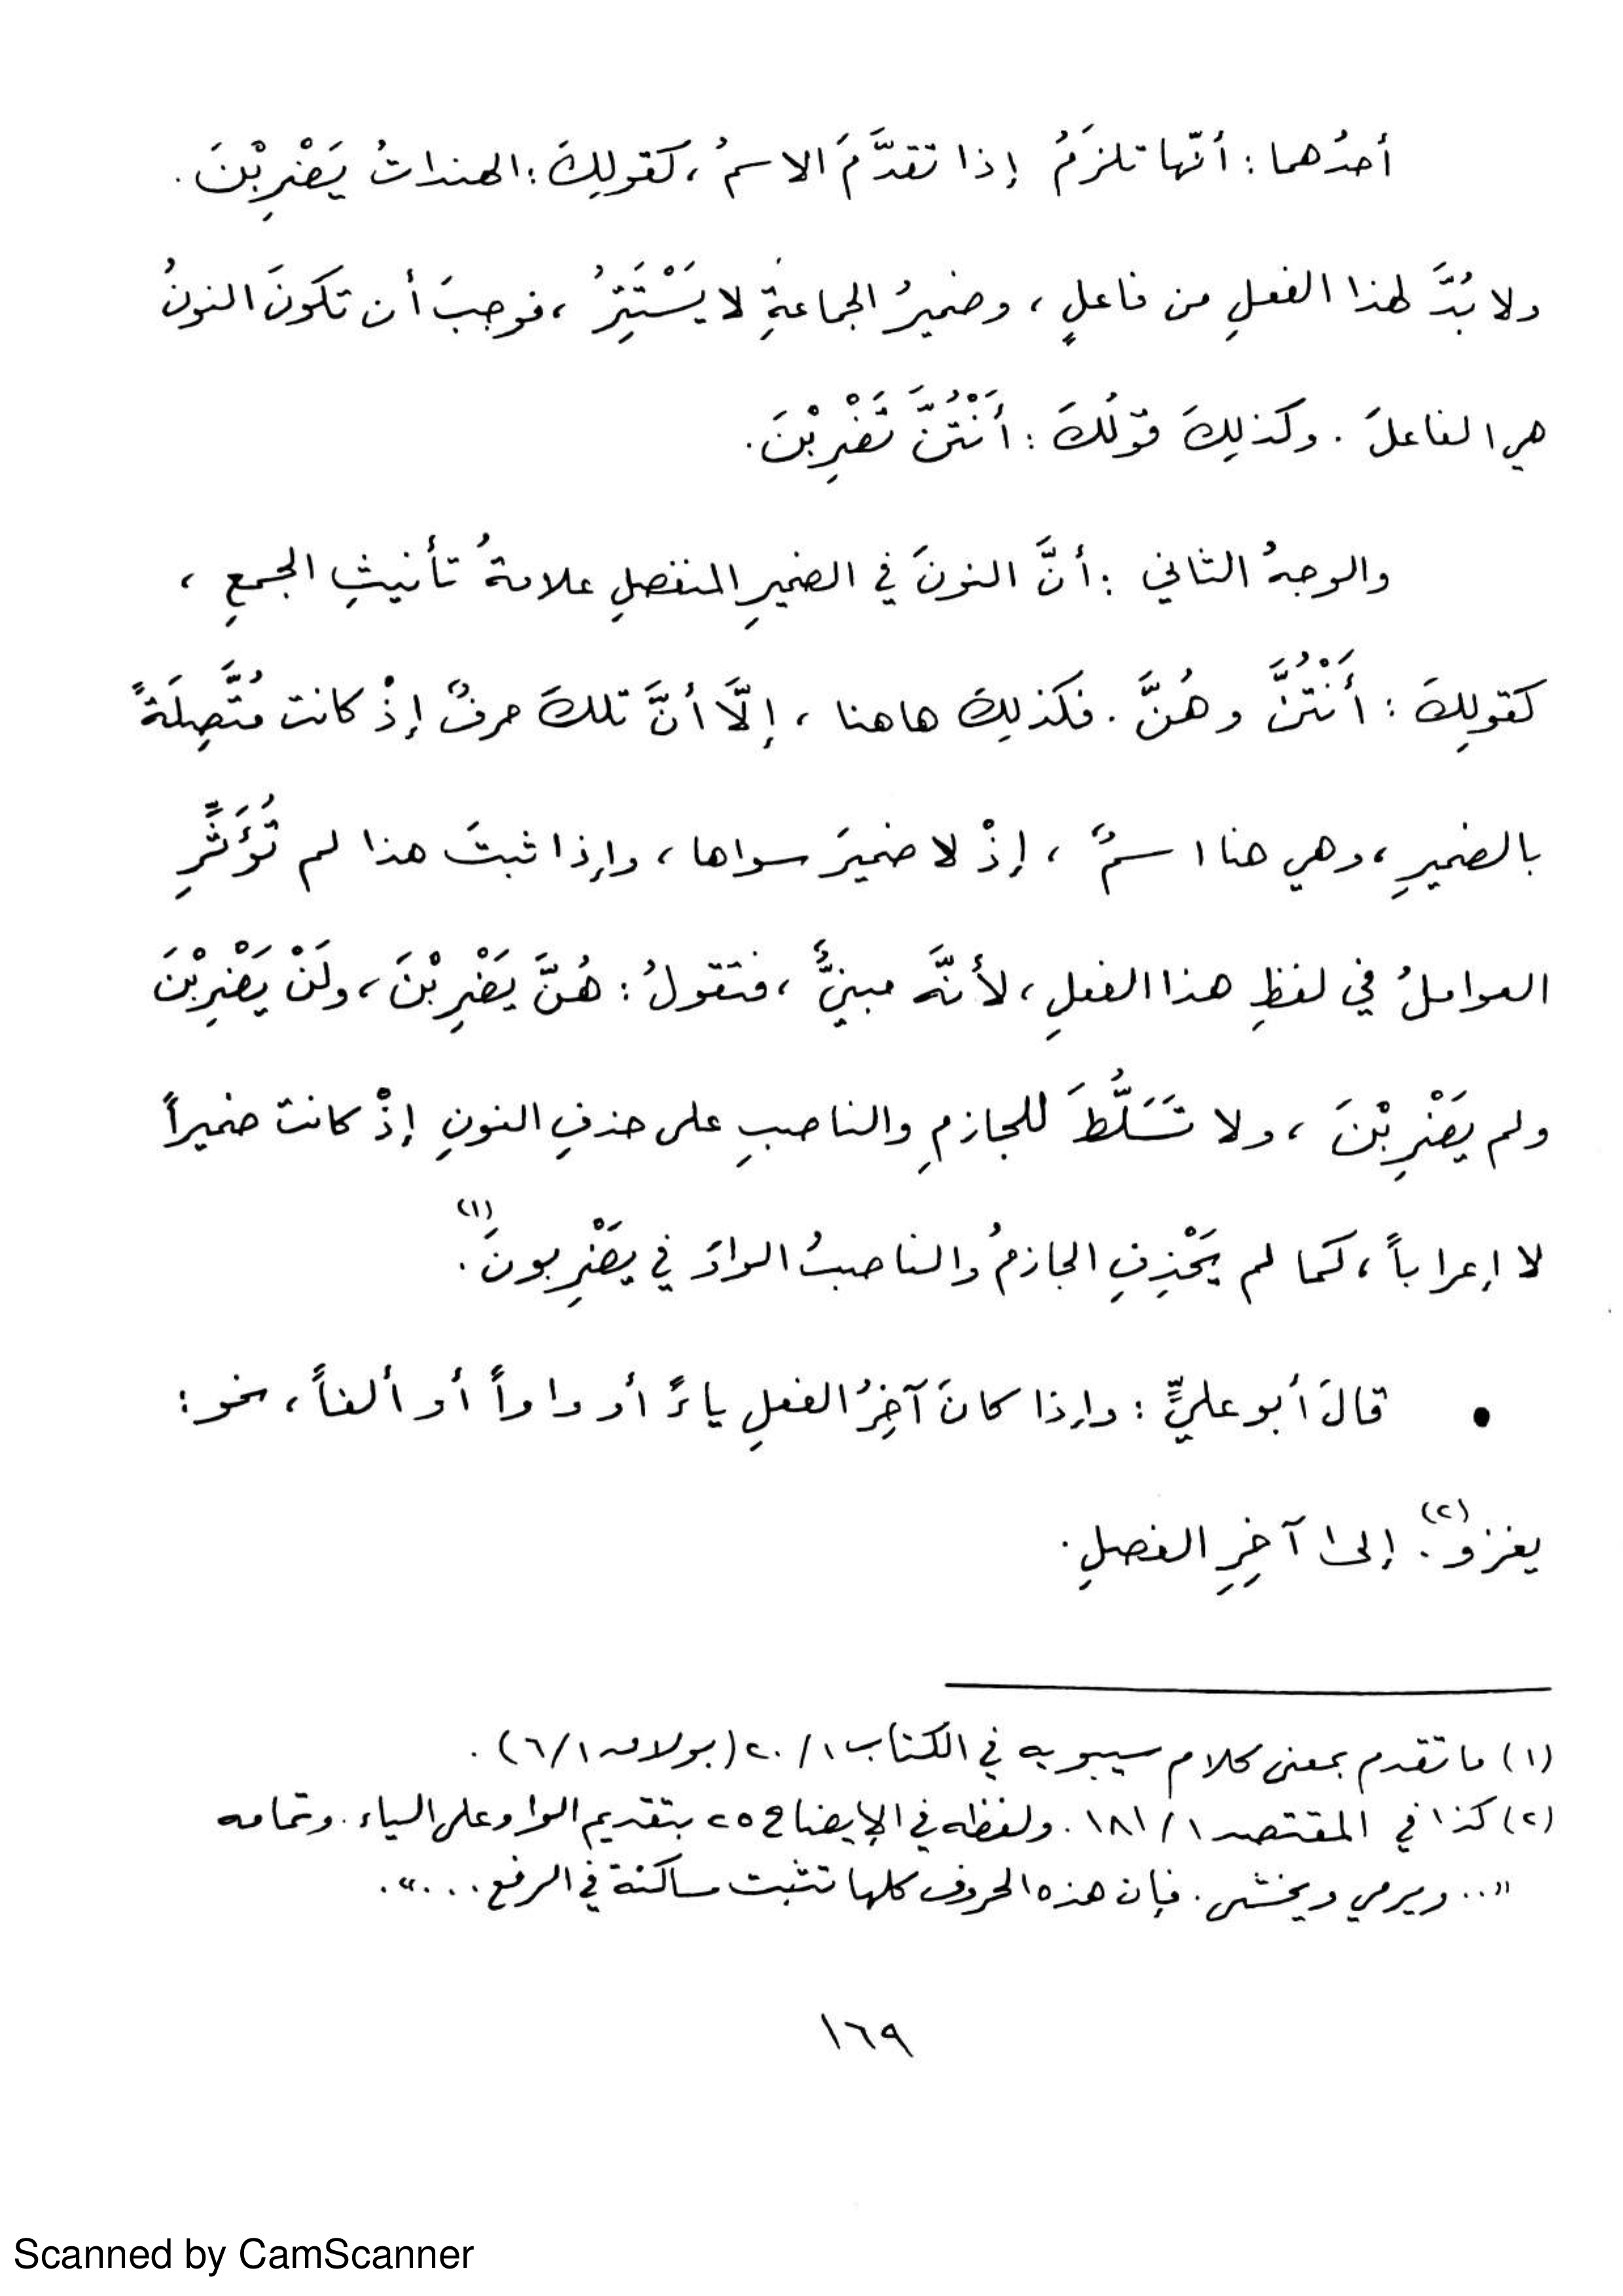 أحدُهما : أنّها تلزَمُ إذا تقدَّمَ الاسمُ ، كقولِكَ : الهنداتُ يَضْرِبْنَ .
ولا بُدَّ لهذا الفعلِ من فاعلٍ ، وضميرُ الجماعةِ لا يَسْتَتِرُ ، فوجبَ أن تكونَ النونُ
هي الفاعلَ . وكذلِكَ قولُكَ : أَنْتُنَّ تَضْرِبْنَ .
والوجهُ الثاني : أنَّ النونَ في الضميرِ المنفصلِ علامةُ تأنيثِ الجمعِ ،
كقولِكَ : أَنْتُنَّ وهُنَّ . فكذلِكَ هاهنا ، إلَّا أنَّ تلكَ حرفٌ إذْ كانت مُتَّصِلَةً
بالضميرِ ، وهي هنا اسمٌ ، إذْ لا ضميرَ سواها ، وإذا ثبتَ هذا لم تُؤَثِّرِ
العواملُ في لفظِ هذا الفعلِ ، لأنَّه مبنيٌّ ، فتقولُ : هُنَّ يَضْرِبْنَ ، ولَنْ يَضْرِبْنَ
ولم يَضْرِبْنَ ، ولا تَسَلُّطَ للجازمِ والناصبِ على حذفِ النونِ إذْ كانت ضميراً
لا إعراباً ، كما لم يَحْذِفِ الجازمُ والناصبُ الواوَ في يَضْرِبونَ (١) .
• قالَ أبو عليٍّ : وإذا كانَ آخِرُ الفعلِ ياءً أو واواً أو ألفاً ، نحو :
يغزو (٢) . إلى آخِرِ الفصلِ .
(١) ما تقدم بمعنى كلام سيبويه في الكتاب ١/ ٢٠ (بولاق ١/ ٦) .
(٢) كذا في المقتصد ١/ ١٨١ . ولفظه في الإيضاح ٢٥ بتقديم الواو على الياء . وتمامه
" .. ويرمي ويخشى . فإن هذه الحروف كلها تثبت ساكنة في الرفع ... " .
١٦٩
Scanned by CamScanner